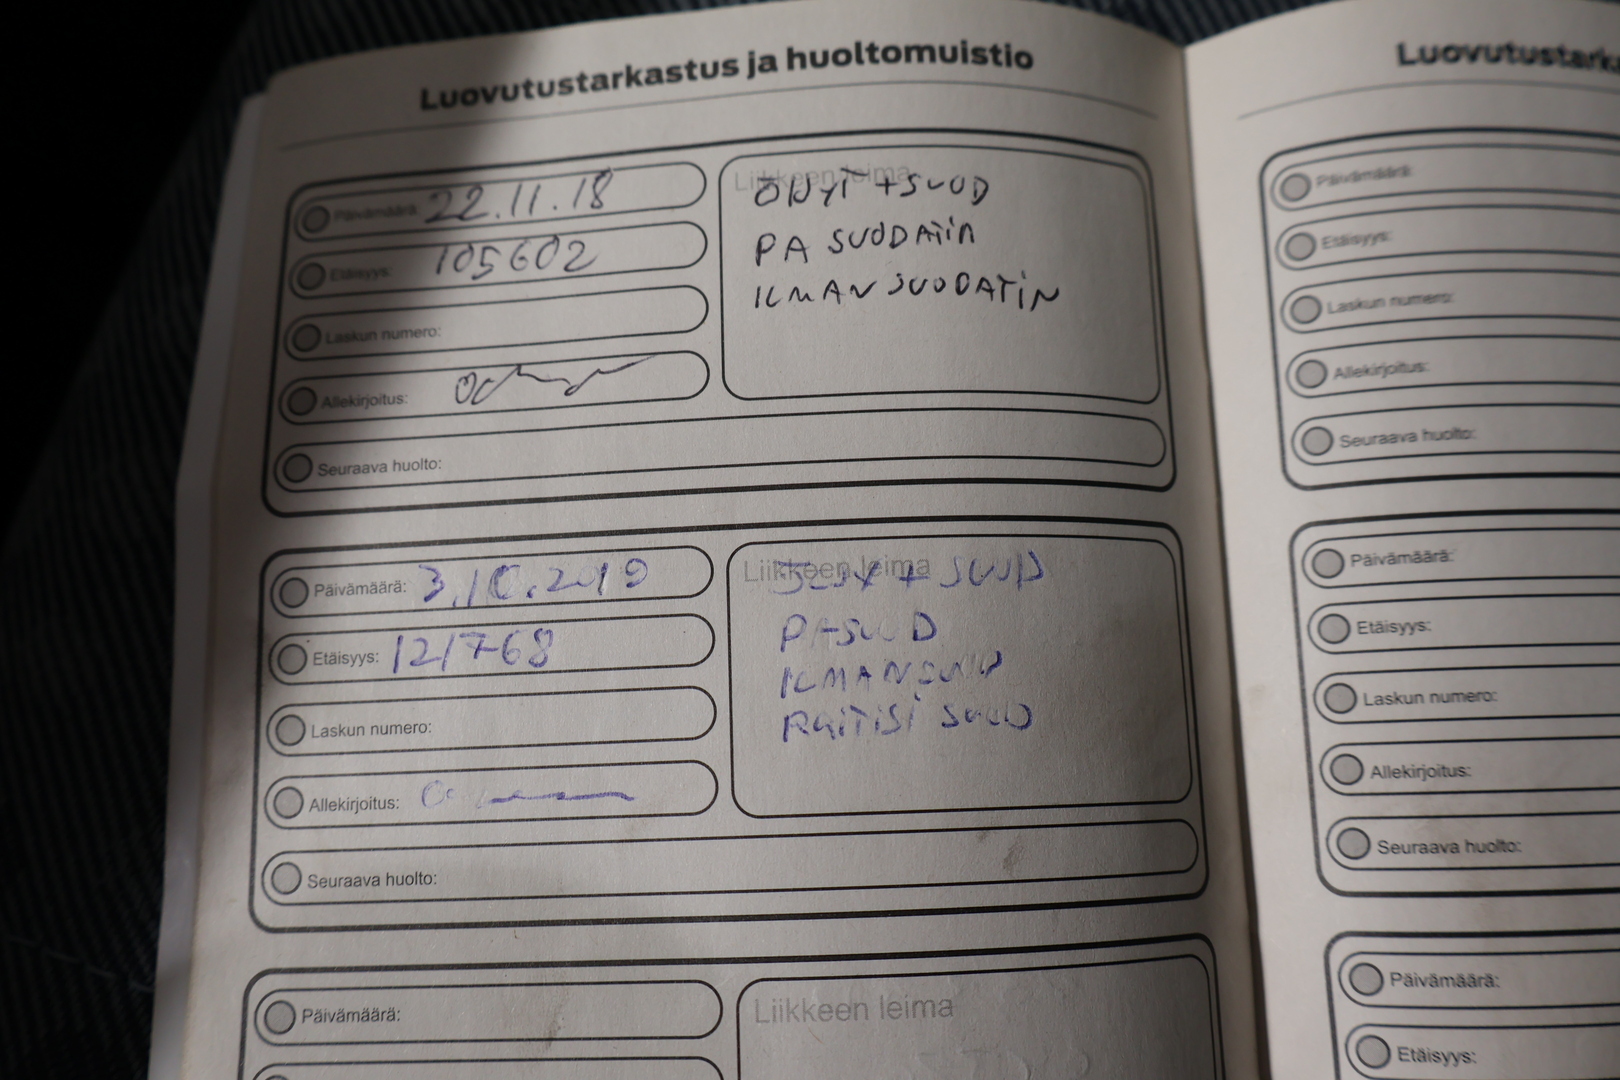 Luovutustarkastus ja huoltomuistio
Päivämäärä: 22.11.18
Etäisyys: 105602
Laskun numero:
Allekirjoitus:
Seuraava huolto:
Liikkeen leima
ÖLJYT + SUOD
PA SUODATIN
ILMANSUODATIN
Päivämäärä: 3.10.2019
Etäisyys: 121768
Laskun numero:
Allekirjoitus:
Seuraava huolto:
Liikkeen leima
+ SUOD
PA SUOD
ILMANSUOD
RAITISI SUOD
Päivämäärä:
Liikkeen leima
Päivämäärä:
Etäisyys:
Laskun numero:
Allekirjoitus:
Seuraava huolto:
Päivämäärä:
Etäisyys:
Laskun numero:
Allekirjoitus:
Seuraava huolto:
Päivämäärä:
Etäisyys: